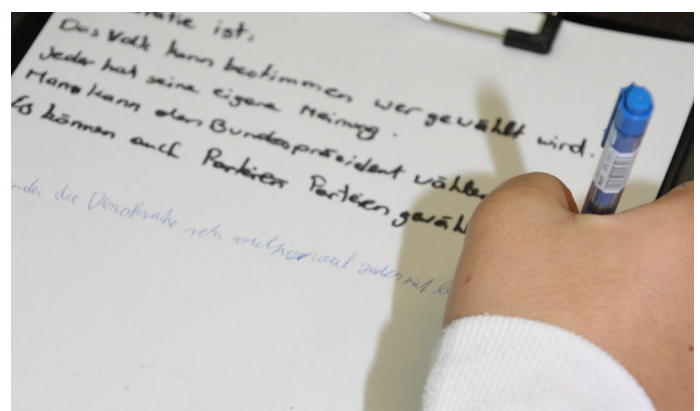 ist:
Das Volk kann bestimmen wer gewählt wird.
Jeder hat seine eigene Meinung.
Mann kann den Bundespräsident wählen
Es können auch Parteien Parteien gewäh
die Demokratie sehr wichtig weil jeder mit